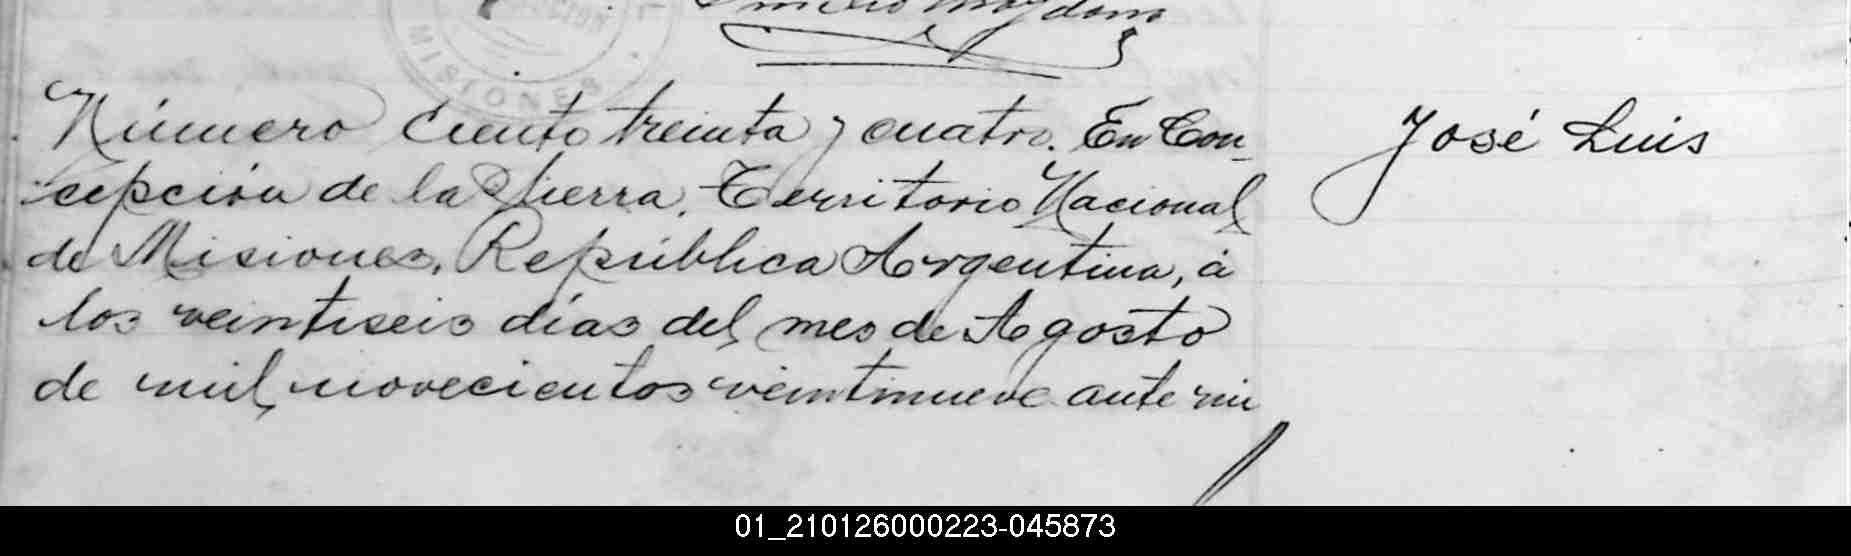 MISIONES
Número ciento treinta y cuatro. En Con-
cepción de la Sierra, Territorio Nacional
de Misiones, República Argentina, á
los veintiseis días del mes de Agosto
de mil novecientos veintinueve ante mi
José Luis
01_210126000223-045873